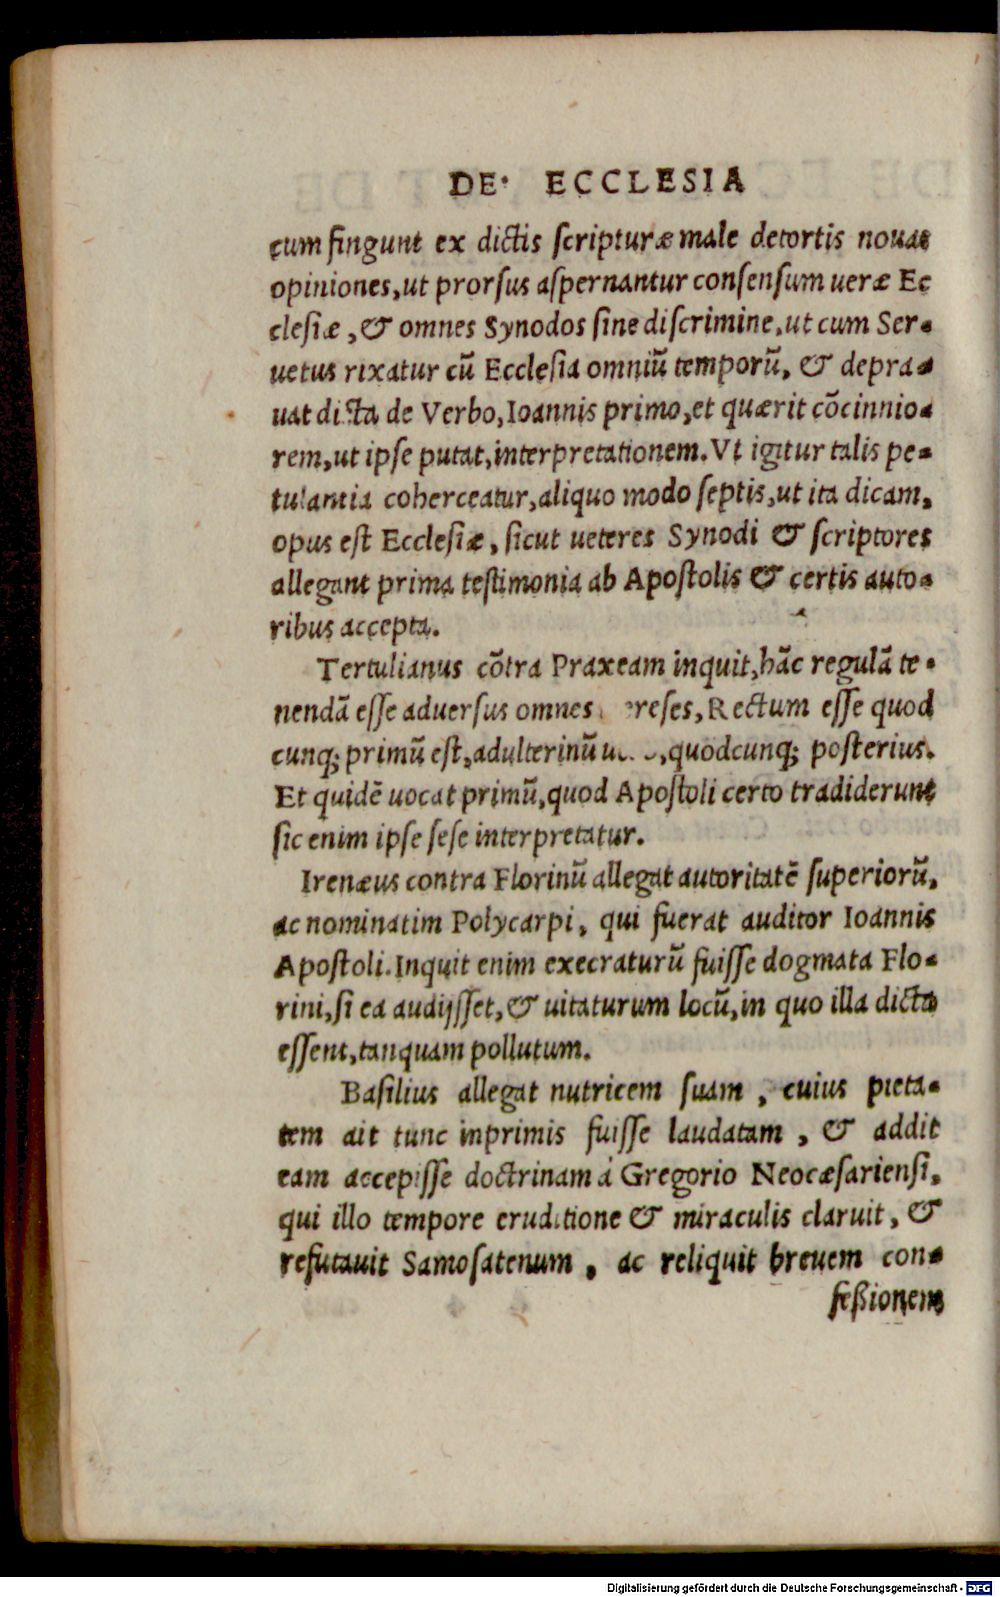 DE ECCLESIA
cum fingunt ex dictis scripturæ male detortis nouas
opiniones, ut prorsus aspernantur consensum ueræ Ec
clesiæ, & omnes Synodos sine discrimine, ut cum Ser-
uetus rixatur cū Ecclesia omniū temporū, & depra-
uat dicta de Verbo, Ioannis primo, et quærit cōcinnio-
rem, ut ipse putat, interpretationem. Vt igitur talis pe-
tulantia coherceatur, aliquo modo septis, ut ita dicam,
opus est Ecclesiæ, sicut ueteres Synodi & scriptores
allegant prima testimonia ab Apostolis & certis auto-
ribus accepta.
Tertulianus cōtra Praxeam inquit, hāc regulā te-
nendā esse aduersus omnes reses, Rectum esse quod
cunq; primū est, adulterinū quodcunq; posterius.
Et quidē uocat primū, quod Apostoli certo tradiderunt
sic enim ipse sese interpretatur.
Irenæus contra Florinū allegat autoritatē superiorū,
ac nominatim Polycarpi, qui fuerat auditor Ioannis
Apostoli. Inquit enim execraturū fuisse dogmata Flo-
rini, si ea audijsset, & uitaturum locū, in quo illa dicta
essent, tanquam pollutum.
Basilius allegat nutricem suam, cuius pieta-
tem ait tunc inprimis fuisse laudatam, & addit
eam accepisse doctrinam á Gregorio Neocæsariensi,
qui illo tempore eruditione & miraculis claruit, &
refutauit Samosatenum, ac reliquit breuem con-
feßionem
Digitalisierung gefördert durch die Deutsche Forschungsgemeinschaft - DFG